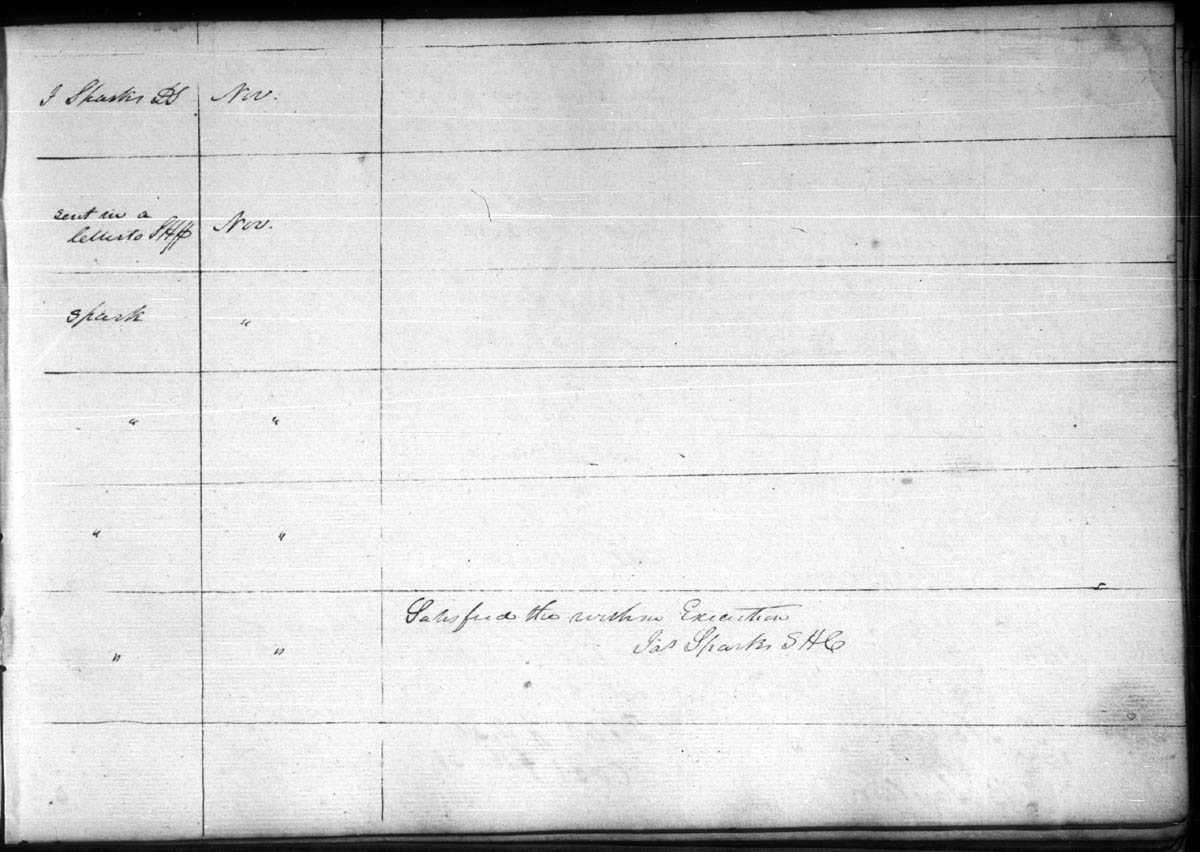 J Sparks DS Nov.
sent in a
letter to Shff Nov.
Spark "
" "
" "
Satisfied the within Execution
" " Jas Sparks SHC